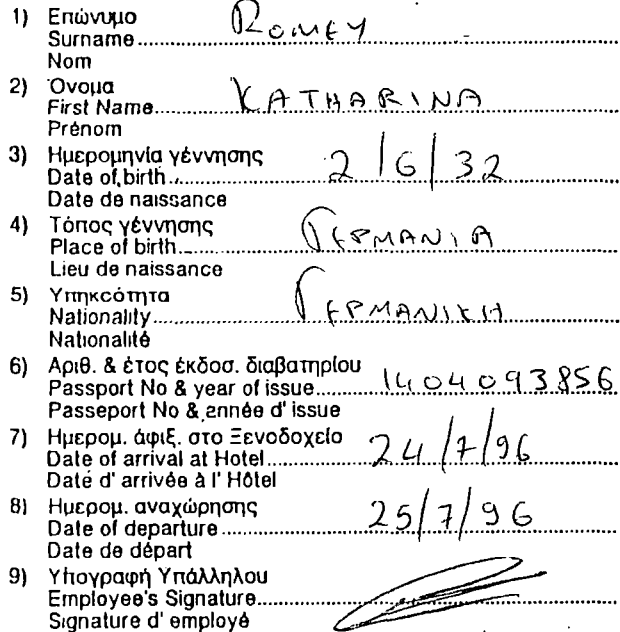 1) Επώνυμο
Surname.......... ROMEY
Nom
2) Όνομα
First Name.......... KATHARINA
Prénom
3) Ημερομηνία γέννησης
Date of birth.......... 2/6/32
Date de naissance
4) Τόπος γέννησης
Place of birth.......... ΓΕΡΜΑΝΙΑ
Lieu de naissance
5) Υπηκοότητα
Nationality.......... ΓΕΡΜΑΝΙΚΗ
Nationalité
6) Αριθ. & έτος έκδοσ. διαβατηρίου
Passport No & year of issue.......... 1404093856
Passeport No & année d' issue
7) Ημερομ. άφιξ. στο Ξενοδοχείο
Date of arrival at Hotel.......... 24/7/96
Daté d' arrivée à l' Hôtel
8) Ημερομ. αναχώρησης
Date of departure.......... 25/7/96
Date de départ
9) Υπογραφή Υπάλληλου
Employee's Signature..........
Signature d' employé